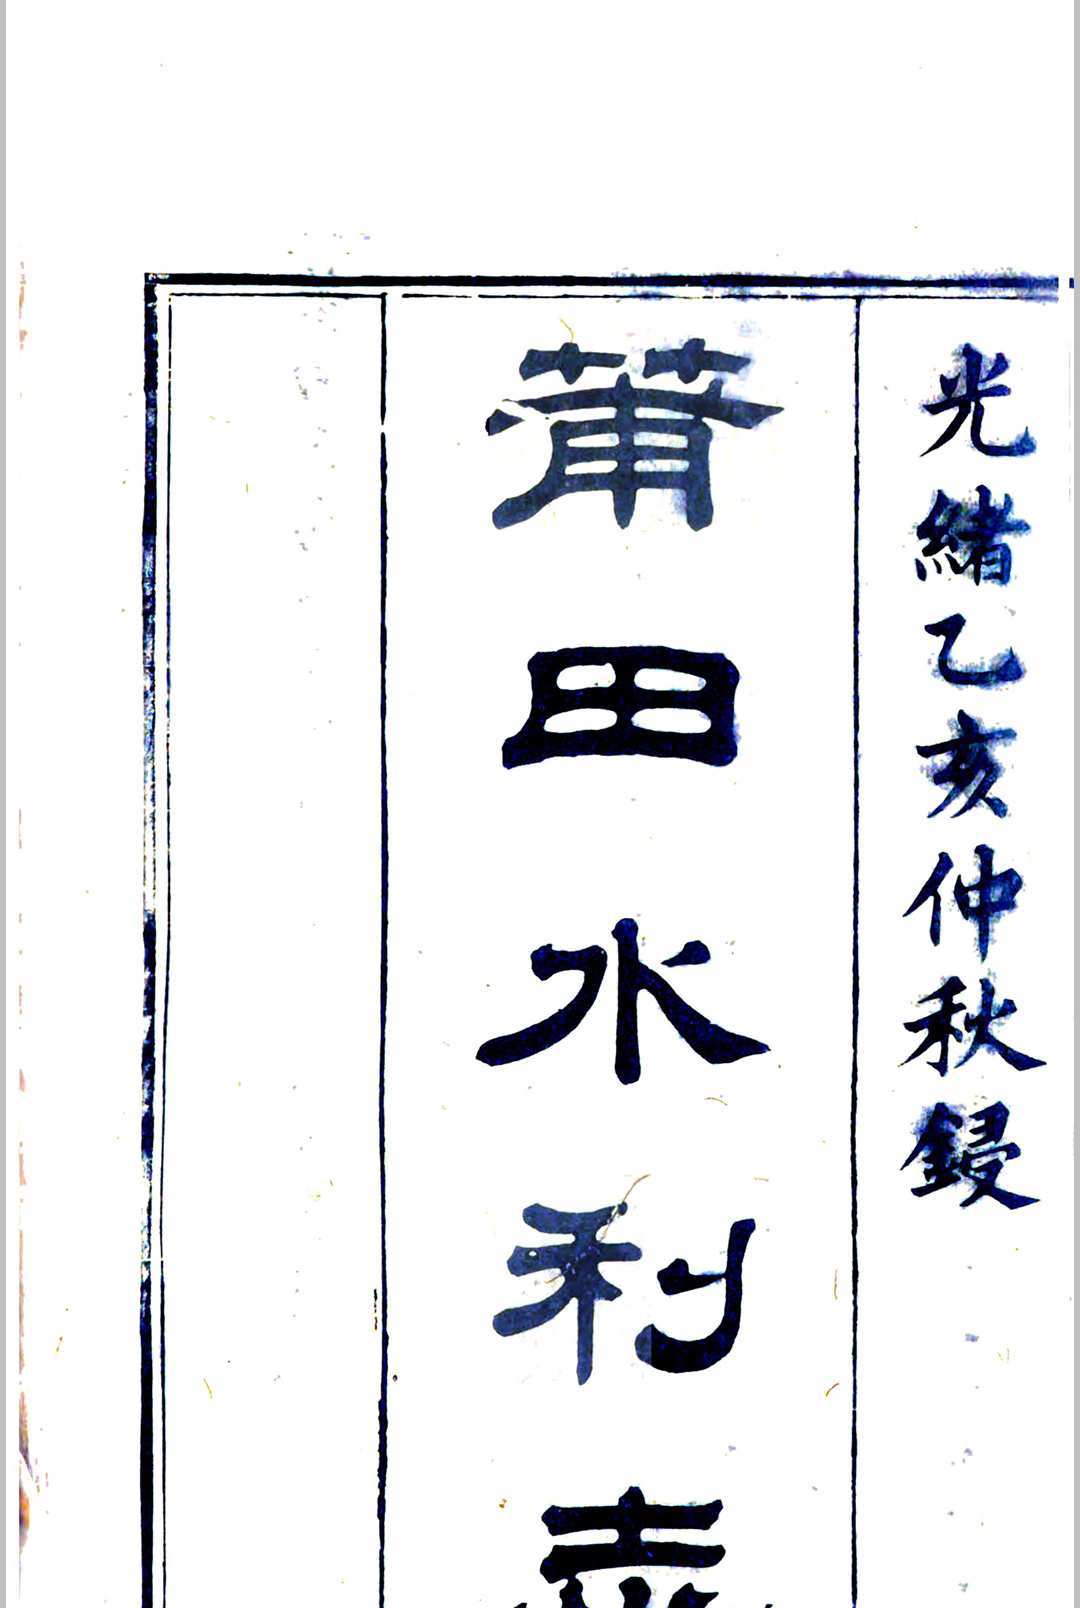 光緒乙亥仲秋鋟
莆田水利